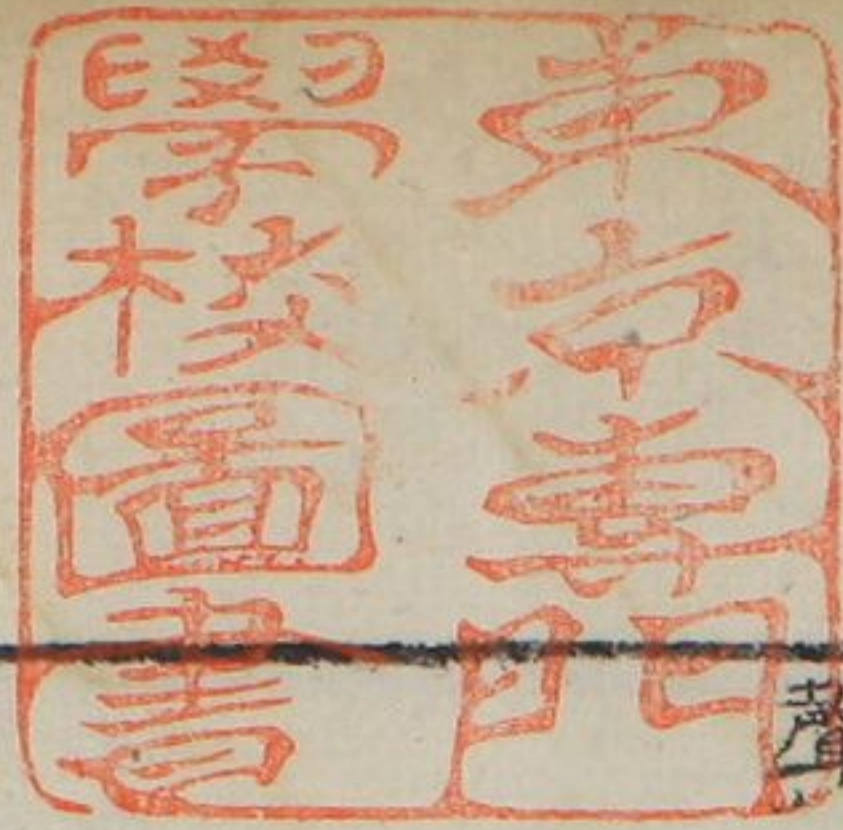 東京專門
學校圖書